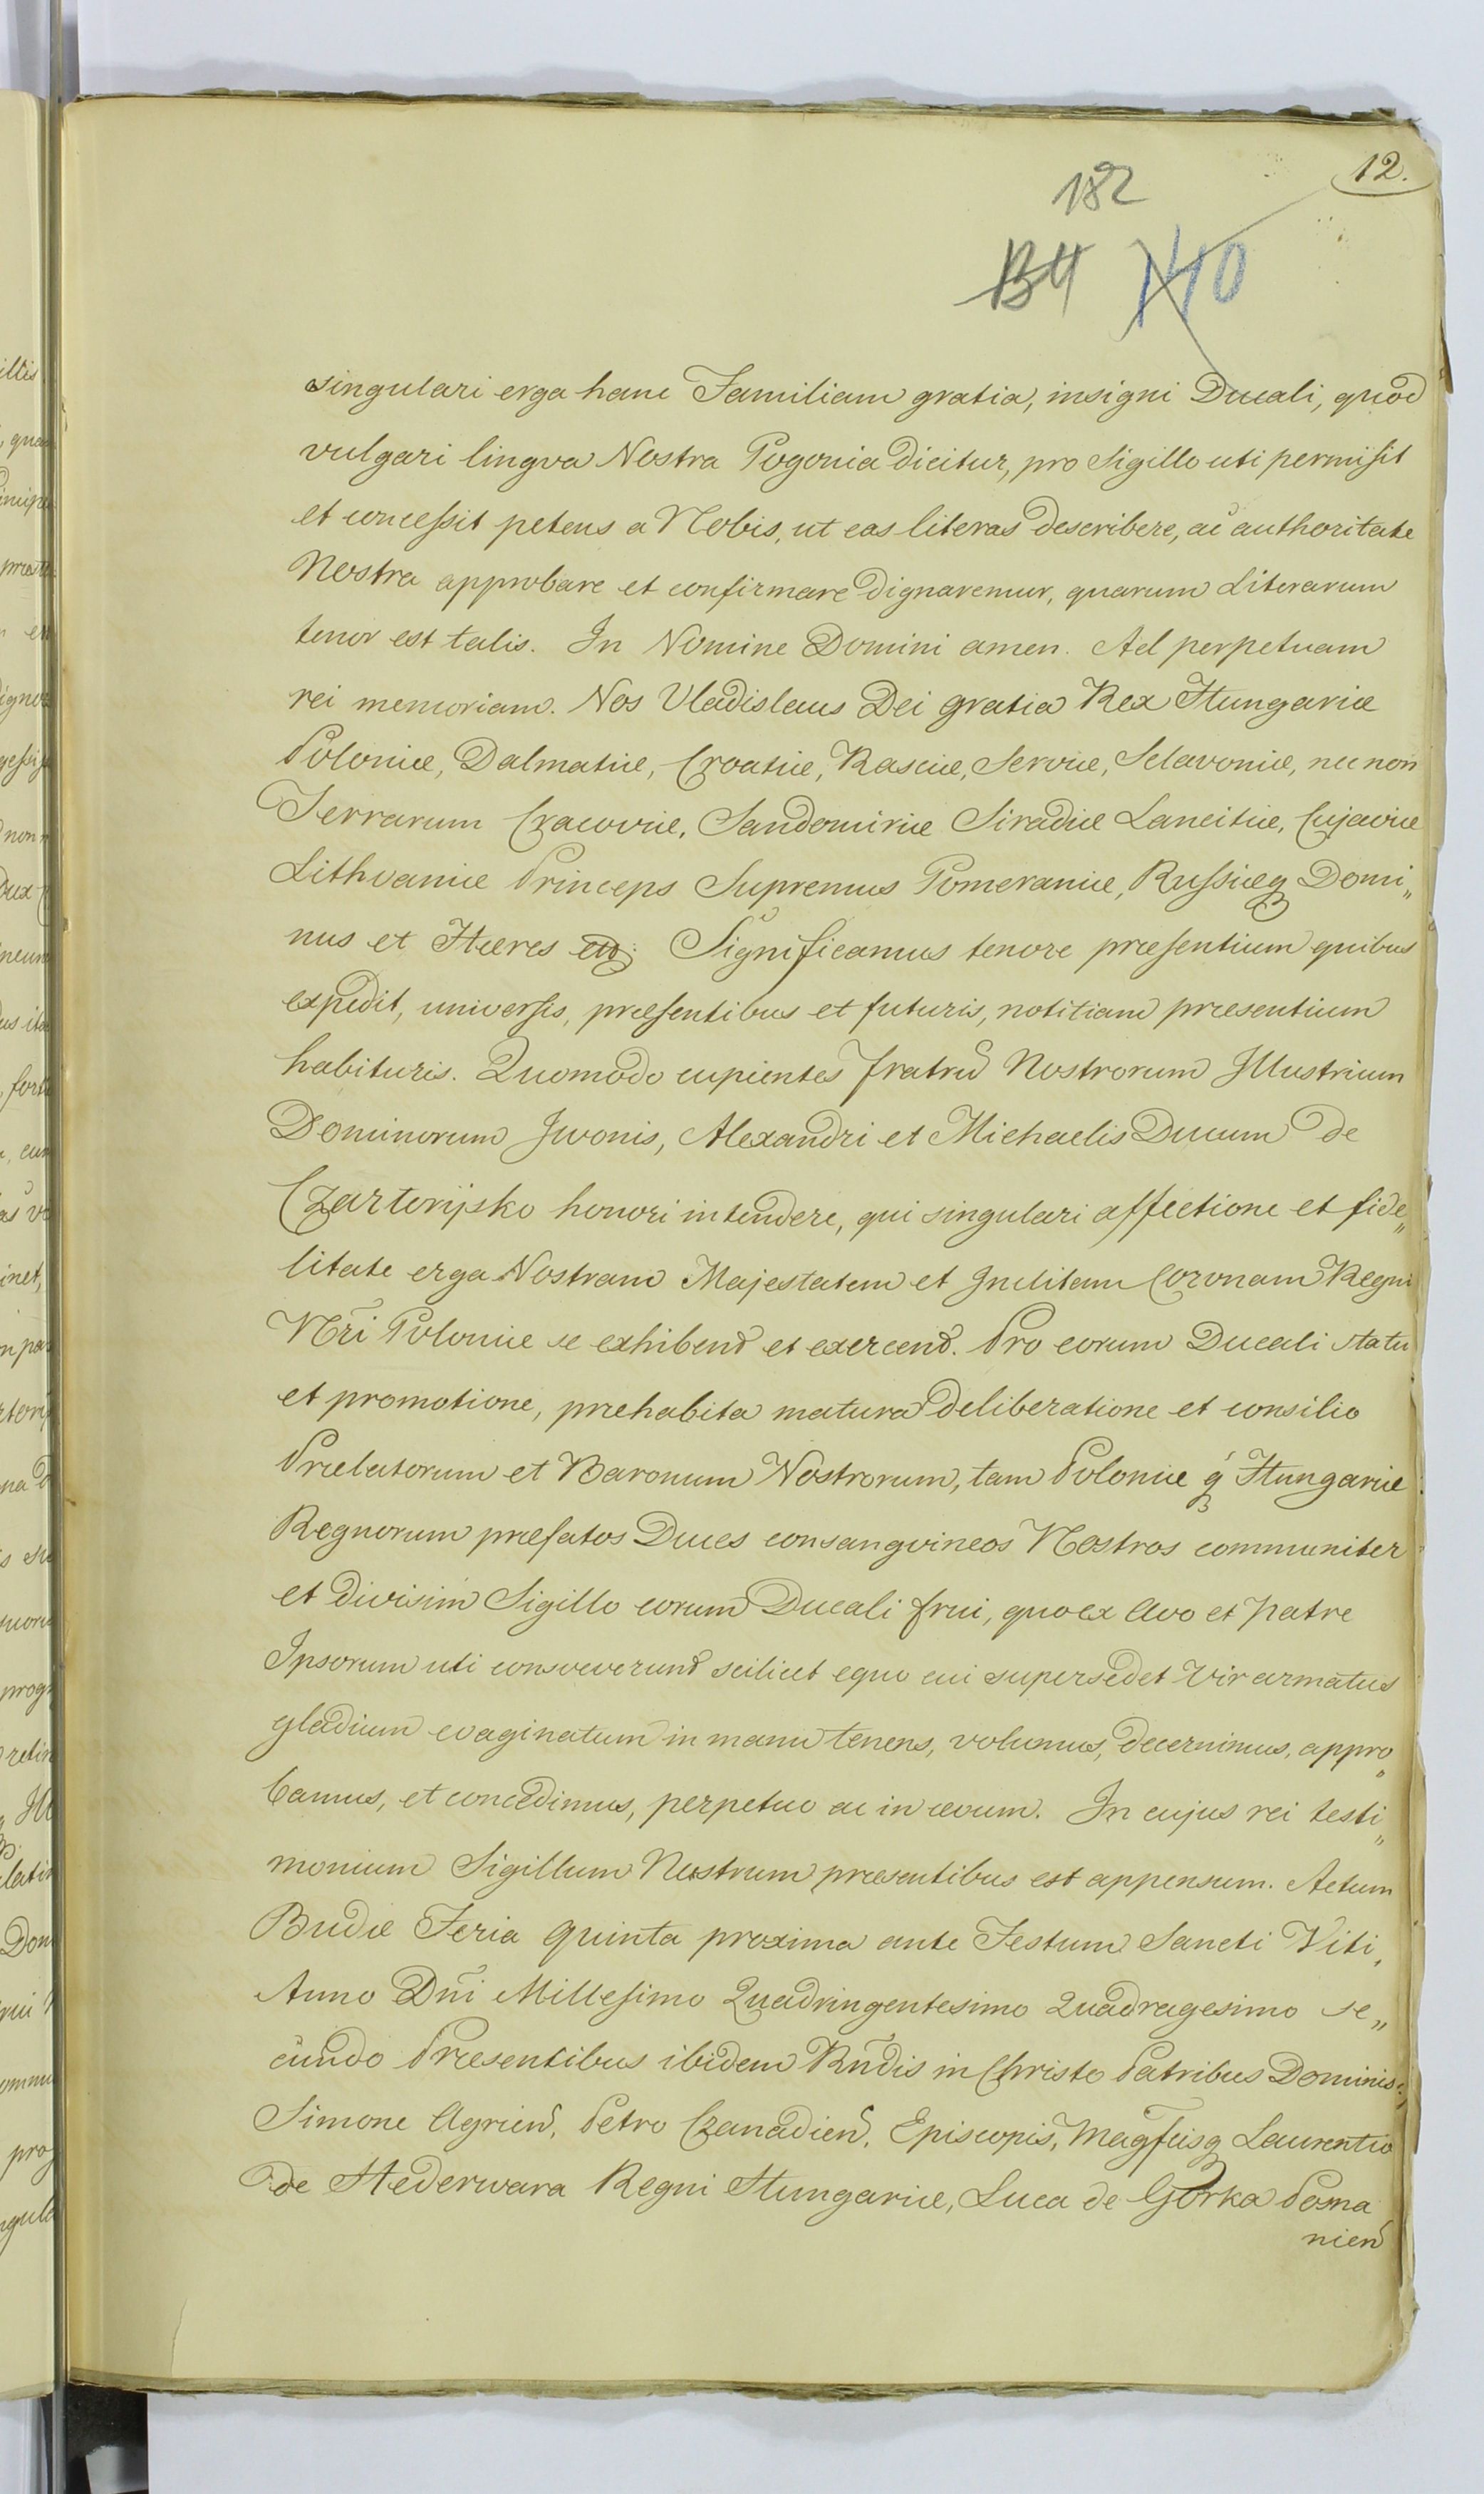 12.
182
B4 N10
singulari erga hanc Familiam gratia, insigni Ducali, quod
vulgari lingva Nostra Pogonia dicitur, pro Sigillo uti permisit
et concessit petens a Nobis, ut eas literas describere, ac authoritate
Nostra approbare et confirmare dignaremur, quarum Literarum
tenor est talis. In Nomine Domini amen. Ad perpetuam
rei memoriam. Nos Vladislaus Dei gratia Rex Hungariæ
Poloniæ, Dalmatiæ, Croatiæ, Rasciæ, Serviæ, Sclavoniæ, nec non
Terrarum Cracoviæ, Sandomiriæ Siradiæ Lanciciæ, Cujaviæ
Lithvaniæ Princeps Supremus Pomeraniæ, Russiæq Domi„
nus et Hæres etc. Significamus tenore præsentium quibus
expedit, universis, præsentibus et futuris, notitiam præsentium
habituris. Quomodo cupientes fratrū Nostrorum Illustrium
Dominorum Iwonis, Alexandri et Michaelis Ducum de
Czartorijsko honori intendere, qui singulari affectione et fide„
litate erga Nostram Majestatem et Inclitam Coronam Regni
Nri Poloniæ se exhibend et exercend. Pro eorum Ducali statu
et promotione, præhabita matura deliberatione et consilio
Prælatorum et Baronum Nostrorum, tam Poloniæ q Hungariæ
Regnorum præfatos Duces consangvineos Nostros communiter
et divisim Sigillo eorum Ducali frui, quo ex Avo et Patre
Ipsorum uti consveverunt scilicet equo cui supersedet Vir armatus
gladium evaginatum in manu tenens, volumus, decernimus, appro„
bamus, et concedimus, perpetuo ac in ævum. In cujus rei testi„
monium Sigillum Nostrum præsentibus est appensum. Actum
Budæ Feria quinta proxima ante Festum Sancti Viti,
Anno Dni Millesimo Quadringentesimo Quadragesimo se„
cundo Præsentibus ibidem Rndis in Christo Patribus Dominis
Simone Agrien, Petro Czanadien, Episcopis, Magfcisq Laurentio
de Hederwara Regni Hungariæ, Luca de Gorka Posna
nien